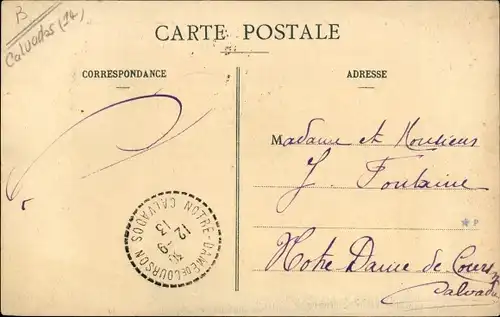 B
Calvados (14)
CARTE POSTALE
CORRESPONDANCE
ADRESSE
Madame et Monsieur
J. Fontaine
Notre Dame de Cours
Calvados
NOTRE-DAME DE COURSON
CALVADOS
30-9
12
13